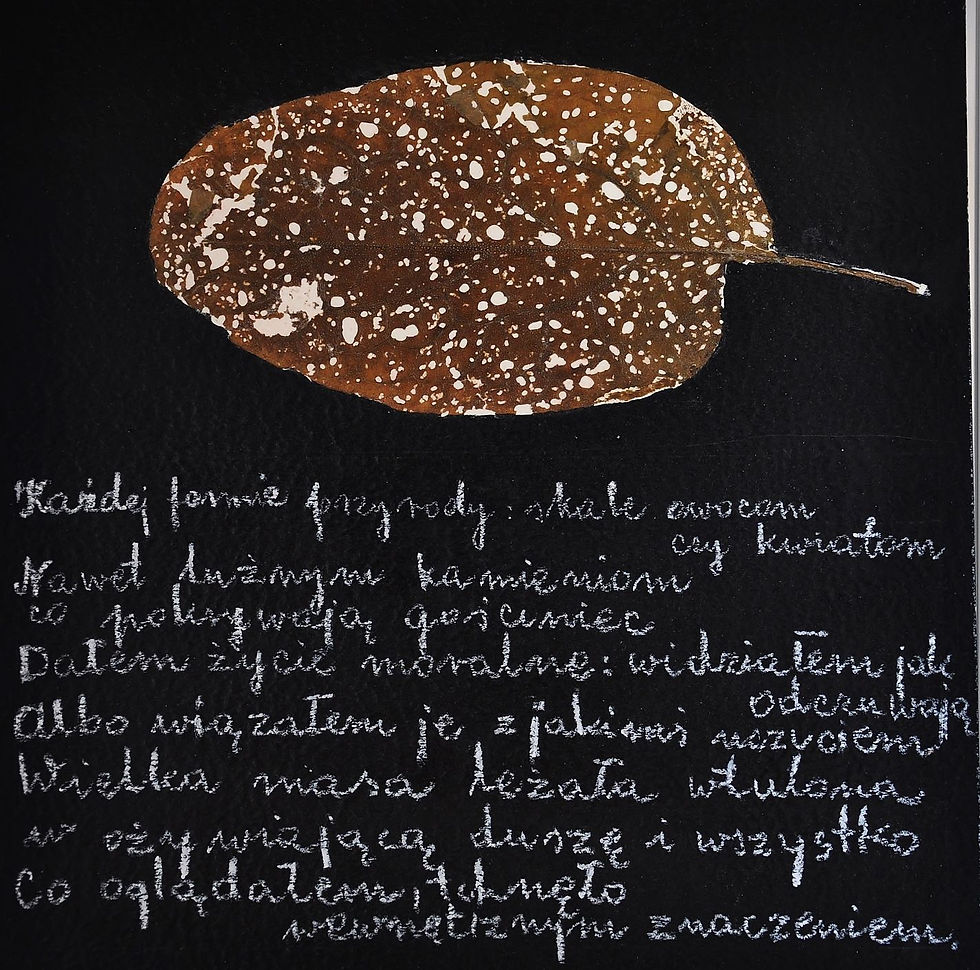 Każdej formie przyrody: skale owocom
czy kwiatom
Nawet luźnym kamieniom
co pokrywają gościniec
Dałem życie moralne: widziałem jak
odczuwają
Albo wiązałem je z jakimś uczuciem
Wielka masa leżała wtulona
w ożywiającą duszę i wszystko
Co oglądałem, tchnęło
wewnętrznym znaczeniem.